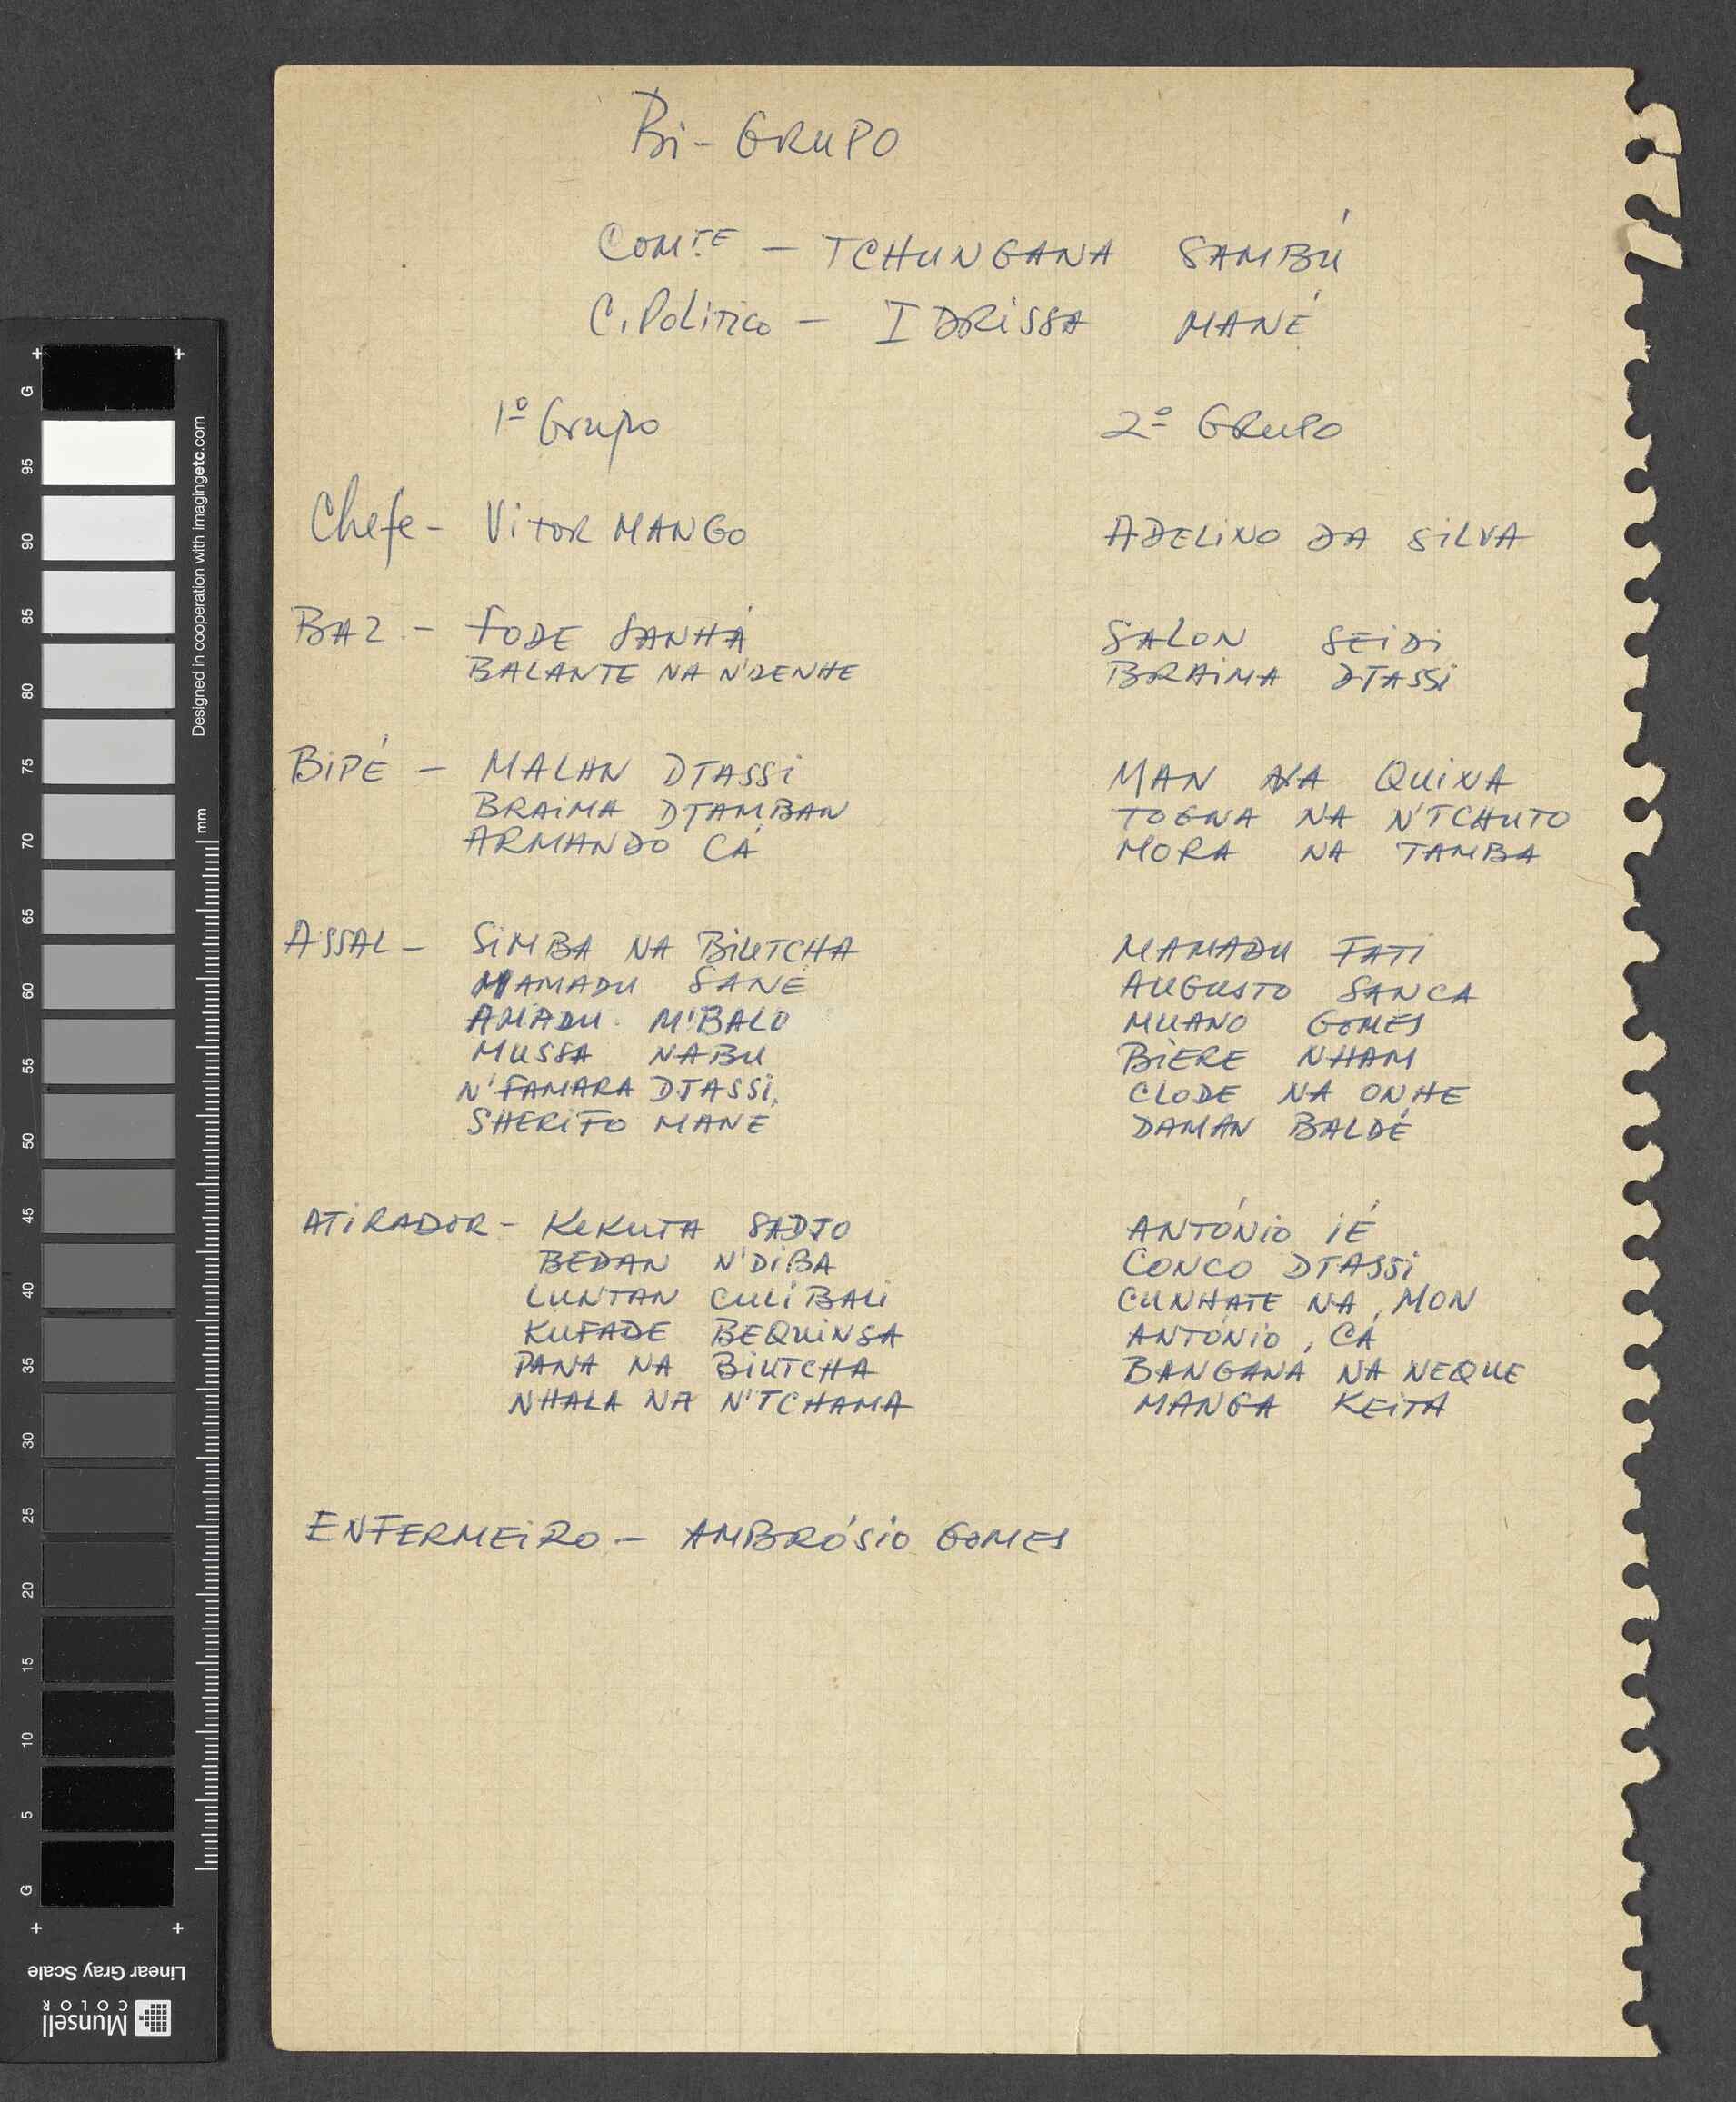 Bi-GRUPO
COMTE - TCHUNGANA SAMBÚ
C. POLITICO - IDRISSA MANÉ
1º Grupo 2º GRUPO
Chefe - VITOR MANGO ADELINO DA SILVA
BAZ - FODE SANHÁ SALON SEIDI
BALANTE NA N'DENHE BRAIMA DJASSI
BIPÉ - MALAN DJASSI MAN NA QUINA
BRAIMA DJAMBAN TOGNA NA N'TCHUTO
ARMANDO CÁ MORA NA TAMBA
ASSAL - SIMBA NA BIUTCHA MAMADU FATI
MAMADU SANÉ AUGUSTO SANCA
AMADU M'BALO MUANO GOMES
MUSSA NABU BIERE NHAM
N'FAMARA DJASSI CLODE NA ONHE
SHERIFO MANÉ DAMAN BALDÉ
ATIRADOR - KEKUTA SADJO ANTÓNIO IÉ
BEDAN N'DIBA CONCO DJASSI
LUNTAN CULIBALI CUNHATE NA MON
KUFADE BEQUINSA ANTÓNIO CÁ
PANA NA BIUTCHA BANGANA NA NEQUE
NHALA NA N'TCHAMA MANGA KEITA
ENFERMEIRO - AMBRÓSIO GOMES
G 95 90 85 80 75 70 65 60 55 50 45 40 35 30 25 20 15 10 5 G
Designed in cooperation with imagingetc.com
mm
Linear Gray Scale
Munsell
COLOR